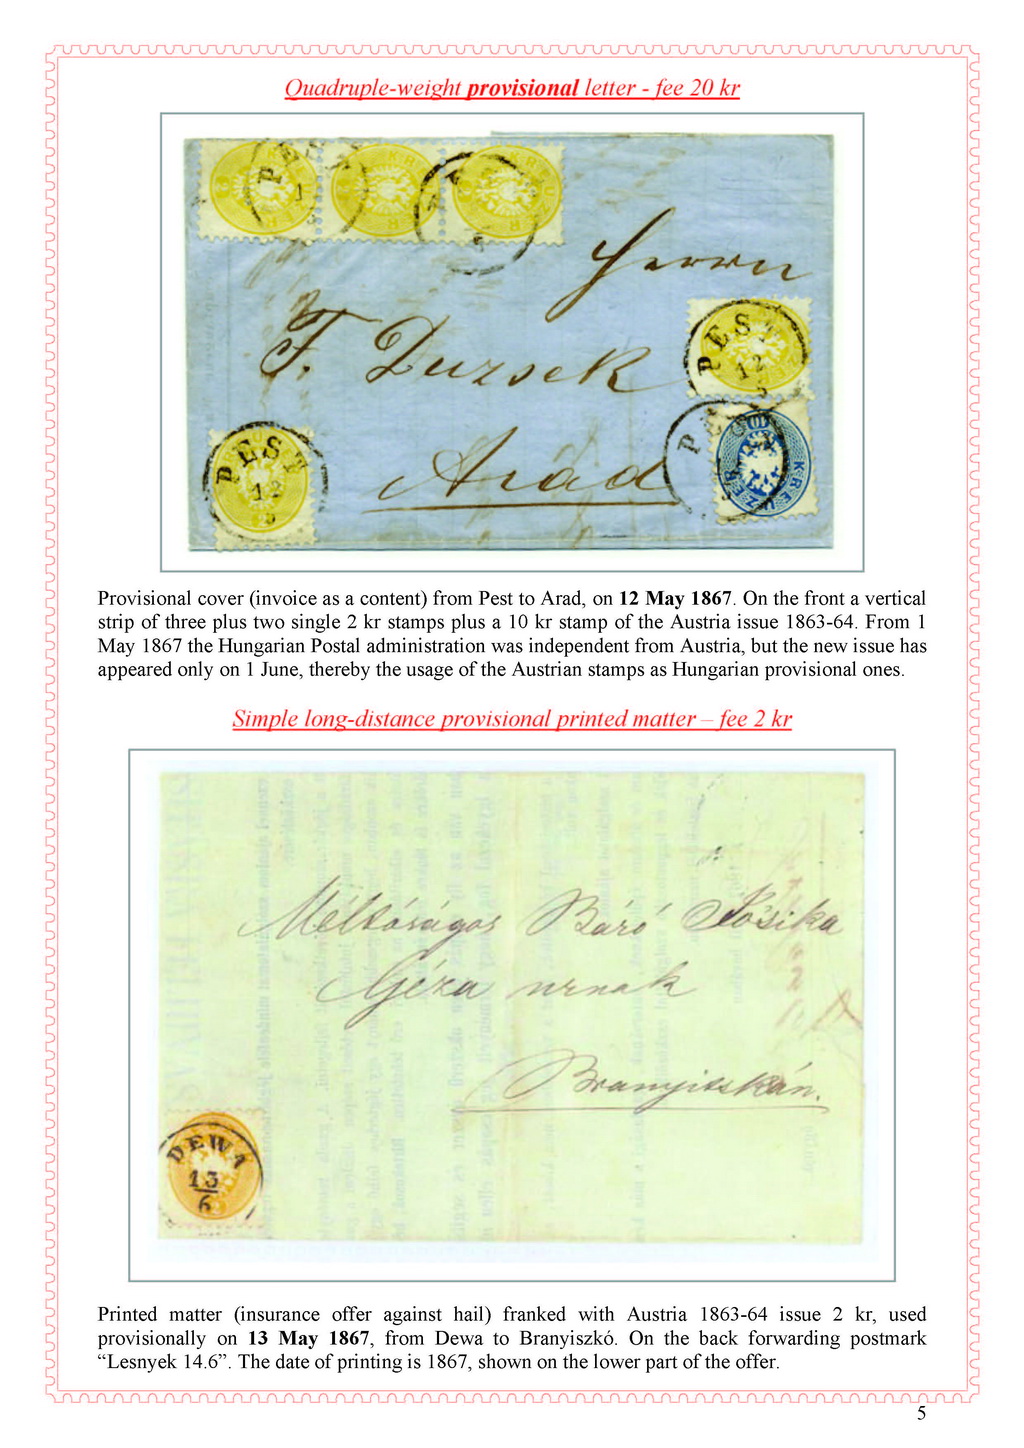 Quadruple-weight provisional letter - fee 20 kr
PES
1
Herrn
F. Duzsek
PEST
12
5
Arad
PEST
12
5
KREUZER
Provisional cover (invoice as a content) from Pest to Arad, on 12 May 1867. On the front a vertical
strip of three plus two single 2 kr stamps plus a 10 kr stamp of the Austria issue 1863-64. From 1
May 1867 the Hungarian Postal administration was independent from Austria, but the new issue has
appeared only on 1 June, thereby the usage of the Austrian stamps as Hungarian provisional ones.
Simple long-distance provisional printed matter – fee 2 kr
Méltóságos Báró Jósika
Géza urnak
Branyitskán.
DEWA
13
6
Printed matter (insurance offer against hail) franked with Austria 1863-64 issue 2 kr, used
provisionally on 13 May 1867, from Dewa to Branyiszkó. On the back forwarding postmark
“Lesnyek 14.6”. The date of printing is 1867, shown on the lower part of the offer.
5